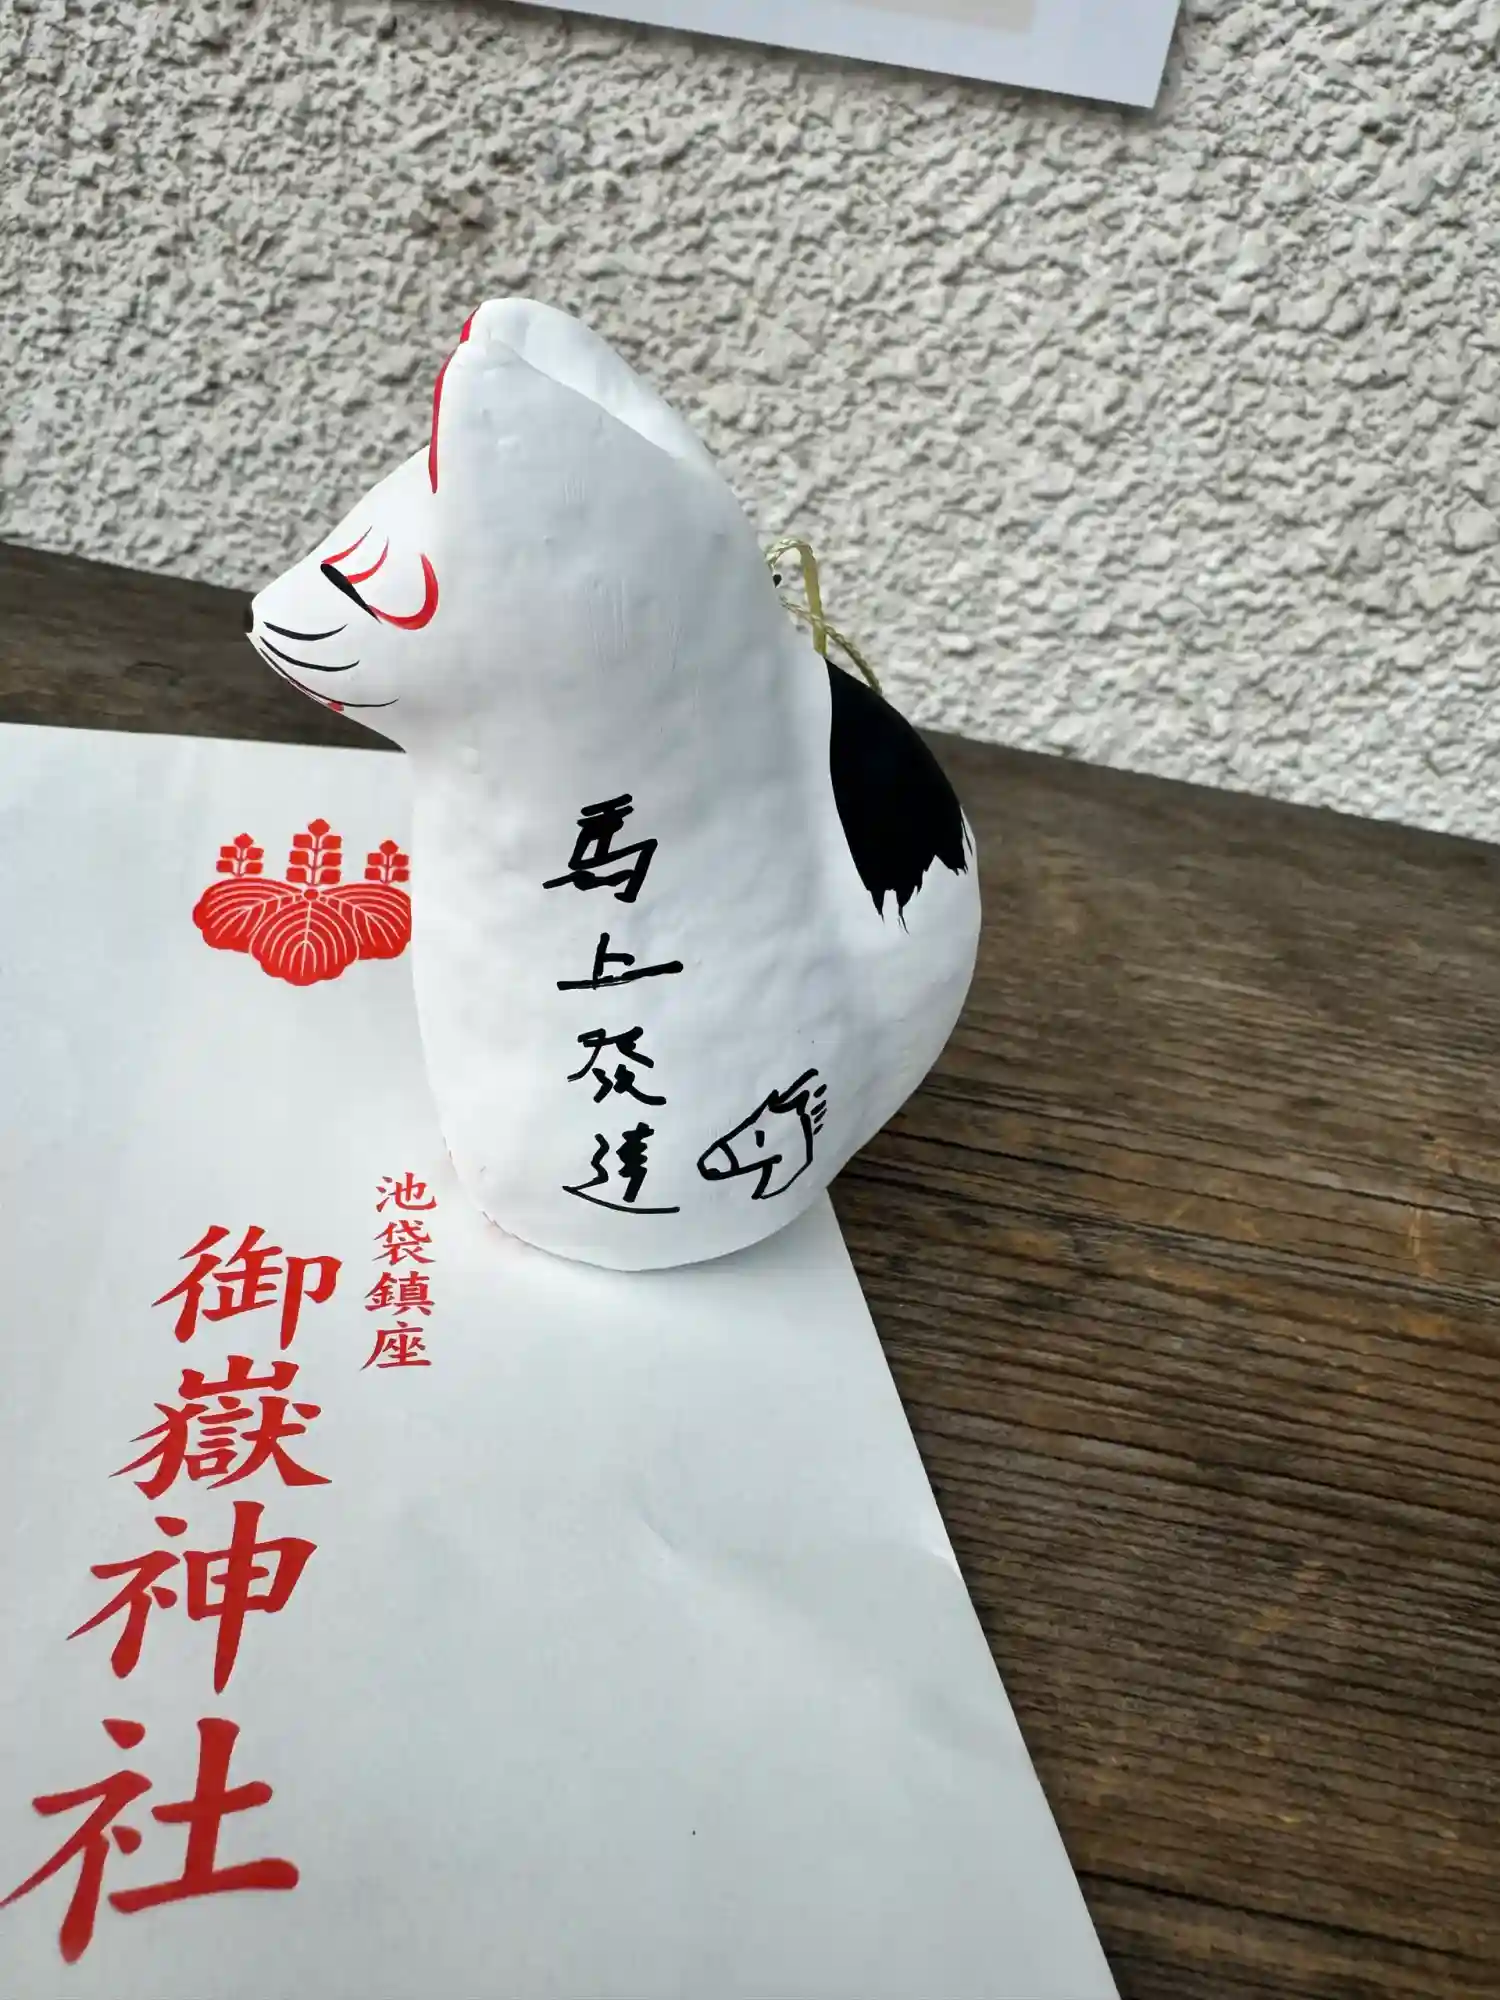 馬上發達
池袋鎮座
御嶽神社